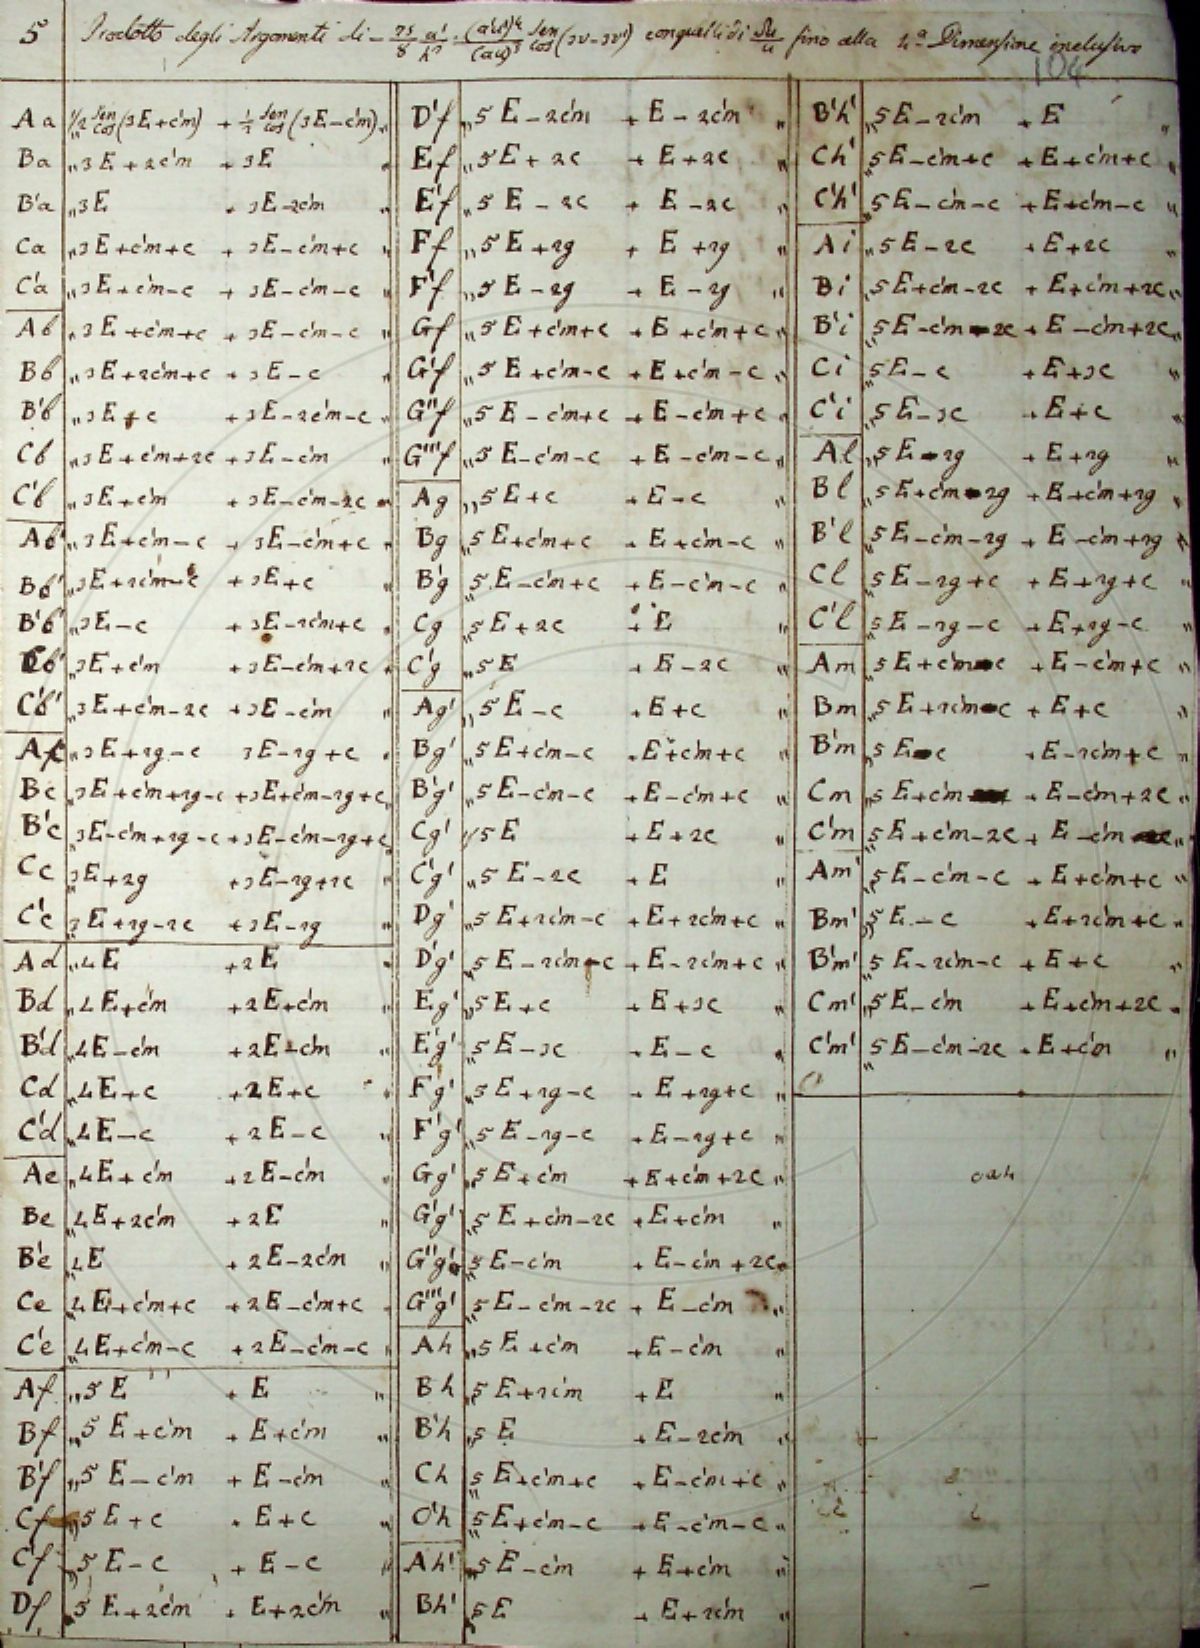 5 Prodotto degli Argomenti di - 75/8 a'/h² . (a'u')⁴/(au)⁵ sen/cos (3v-3v') con quelli di δu/u fino alla 4ª Dimensione inclusivo
104
Aa ½ sen/cos (3E+c'm) + ½ sen/cos (3E-c'm) "
Ba " 3E+2c'm + 3E "
B'a " 3E + 3E-2c'm "
Ca " 3E+c'm+c + 3E-c'm+c "
C'a " 3E+c'm-c + 3E-c'm-c "
Ab " 3E+c'm+c + 3E-c'm-c "
Bb " 3E+2c'm+c + 3E-c "
B'b " 3E+c + 3E-2c'm-c "
Cb " 3E+c'm+2c + 3E-c'm "
C'b " 3E+c'm + 3E-c'm-2c "
Ab' " 3E+c'm-c + 3E-c'm+c "
Bb' " 3E+2c'm-c + 3E+c "
B'b' " 3E-c + 3E-2c'm+c "
Cb' " 3E+c'm + 3E-c'm+2c "
C'b' " 3E+c'm-2c + 3E-c'm "
Ac " 3E+2g-c 3E-2g+c "
Bc " 3E+c'm+2g-c + 3E+c'm-2g+c "
B'c " 3E-c'm+2g-c + 3E-c'm-2g+c "
Cc " 3E+2g + 3E-2g+2c
C'c " 3E+2g-2c + 3E-2g
Ad " 4E + 2E "
Bd " 4E+c'm + 2E+c'm "
B'd " 4E-c'm + 2E-c'm "
Cd " 4E+c + 2E+c "
C'd " 4E-c + 2E-c "
Ae " 4E+c'm + 2E-c'm "
Be " 4E+2c'm + 2E "
B'e " 4E + 2E-2c'm "
Ce " 4E+c'm+c + 2E-c'm+c "
C'e " 4E+c'm-c + 2E-c'm-c "
Af " 5E + E "
Bf " 5E+c'm + E+c'm "
B'f " 5E-c'm + E-c'm "
Cf " 5E+c + E+c "
C'f " 5E-c + E-c "
Df " 5E+2c'm + E+2c'm "
D'f " 5E-2c'm + E-2c'm "
Ef " 5E+2c + E+2c "
E'f " 5E-2c + E-2c "
Ff " 5E+2g + E+2g "
F'f " 5E-2g + E-2g "
Gf " 5E+c'm+c + E+c'm+c "
G'f " 5E+c'm-c + E+c'm-c "
G''f " 5E-c'm+c + E-c'm+c "
G'''f " 5E-c'm-c + E-c'm-c "
Ag " 5E+c + E-c "
Bg " 5E+c'm+c + E+c'm-c "
B'g " 5E-c'm+c + E-c'm-c "
Cg " 5E+2c + E "
C'g " 5E + E-2c "
Ag' " 5E-c + E+c "
Bg' " 5E+c'm-c + E+c'm+c "
B'g' " 5E-c'm-c + E-c'm+c "
Cg' " 5E + E+2c "
C'g' " 5E-2c + E "
Dg' " 5E+2c'm-c + E+2c'm+c "
D'g' " 5E-2c'm-c + E-2c'm+c "
Eg' " 5E+c + E+3c "
E'g' " 5E-3c + E-c "
Fg' " 5E+2g-c + E+2g+c "
F'g' " 5E-2g-c + E-2g+c "
Gg' " 5E+c'm + E+c'm+2c "
G'g' " 5E+c'm-2c + E+c'm "
G''g' " 5E-c'm + E-c'm+2c "
G'''g' " 5E-c'm-2c + E-c'm "
Ah " 5E+c'm + E-c'm
Bh " 5E+2c'm + E "
B'h " 5E + E-2c'm "
Ch " 5E+c'm+c + E-c'm+c "
C'h " 5E+c'm-c + E-c'm-c "
Ah' " 5E-c'm + E+c'm "
Bh' " 5E + E+2c'm "
B'h' " 5E-2c'm + E "
Ch' " 5E-c'm+c + E+c'm+c "
C'h' " 5E-c'm-c + E+c'm-c "
Ai " 5E-2c + E+2c "
Bi " 5E+c'm-2c + E+c'm+2c "
B'i " 5E-c'm-2c + E-c'm+2c "
Ci " 5E-c + E+3c "
C'i " 5E-3c + E+c "
Al " 5E-2g + E+2g "
Bl " 5E+c'm-2g + E+c'm+2g "
B'l " 5E-c'm-2g + E-c'm+2g "
Cl " 5E-2g+c + E+2g+c "
C'l " 5E-2g-c + E+2g-c "
Am " 5E+c'm-c + E-c'm+c "
Bm " 5E+2c'm-c + E+c "
B'm " 5E-c + E-2c'm+c "
Cm " 5E+c'm + E-c'm+2c "
C'm " 5E+c'm-2c + E-c'm "
Am' " 5E-c'm-c + E+c'm+c "
Bm' " 5E-c + E+2c'm+c "
B'm' " 5E-2c'm-c + E+c "
Cm' " 5E-c'm + E+c'm+2c "
C'm' " 5E-c'm-2c + E+c'm "